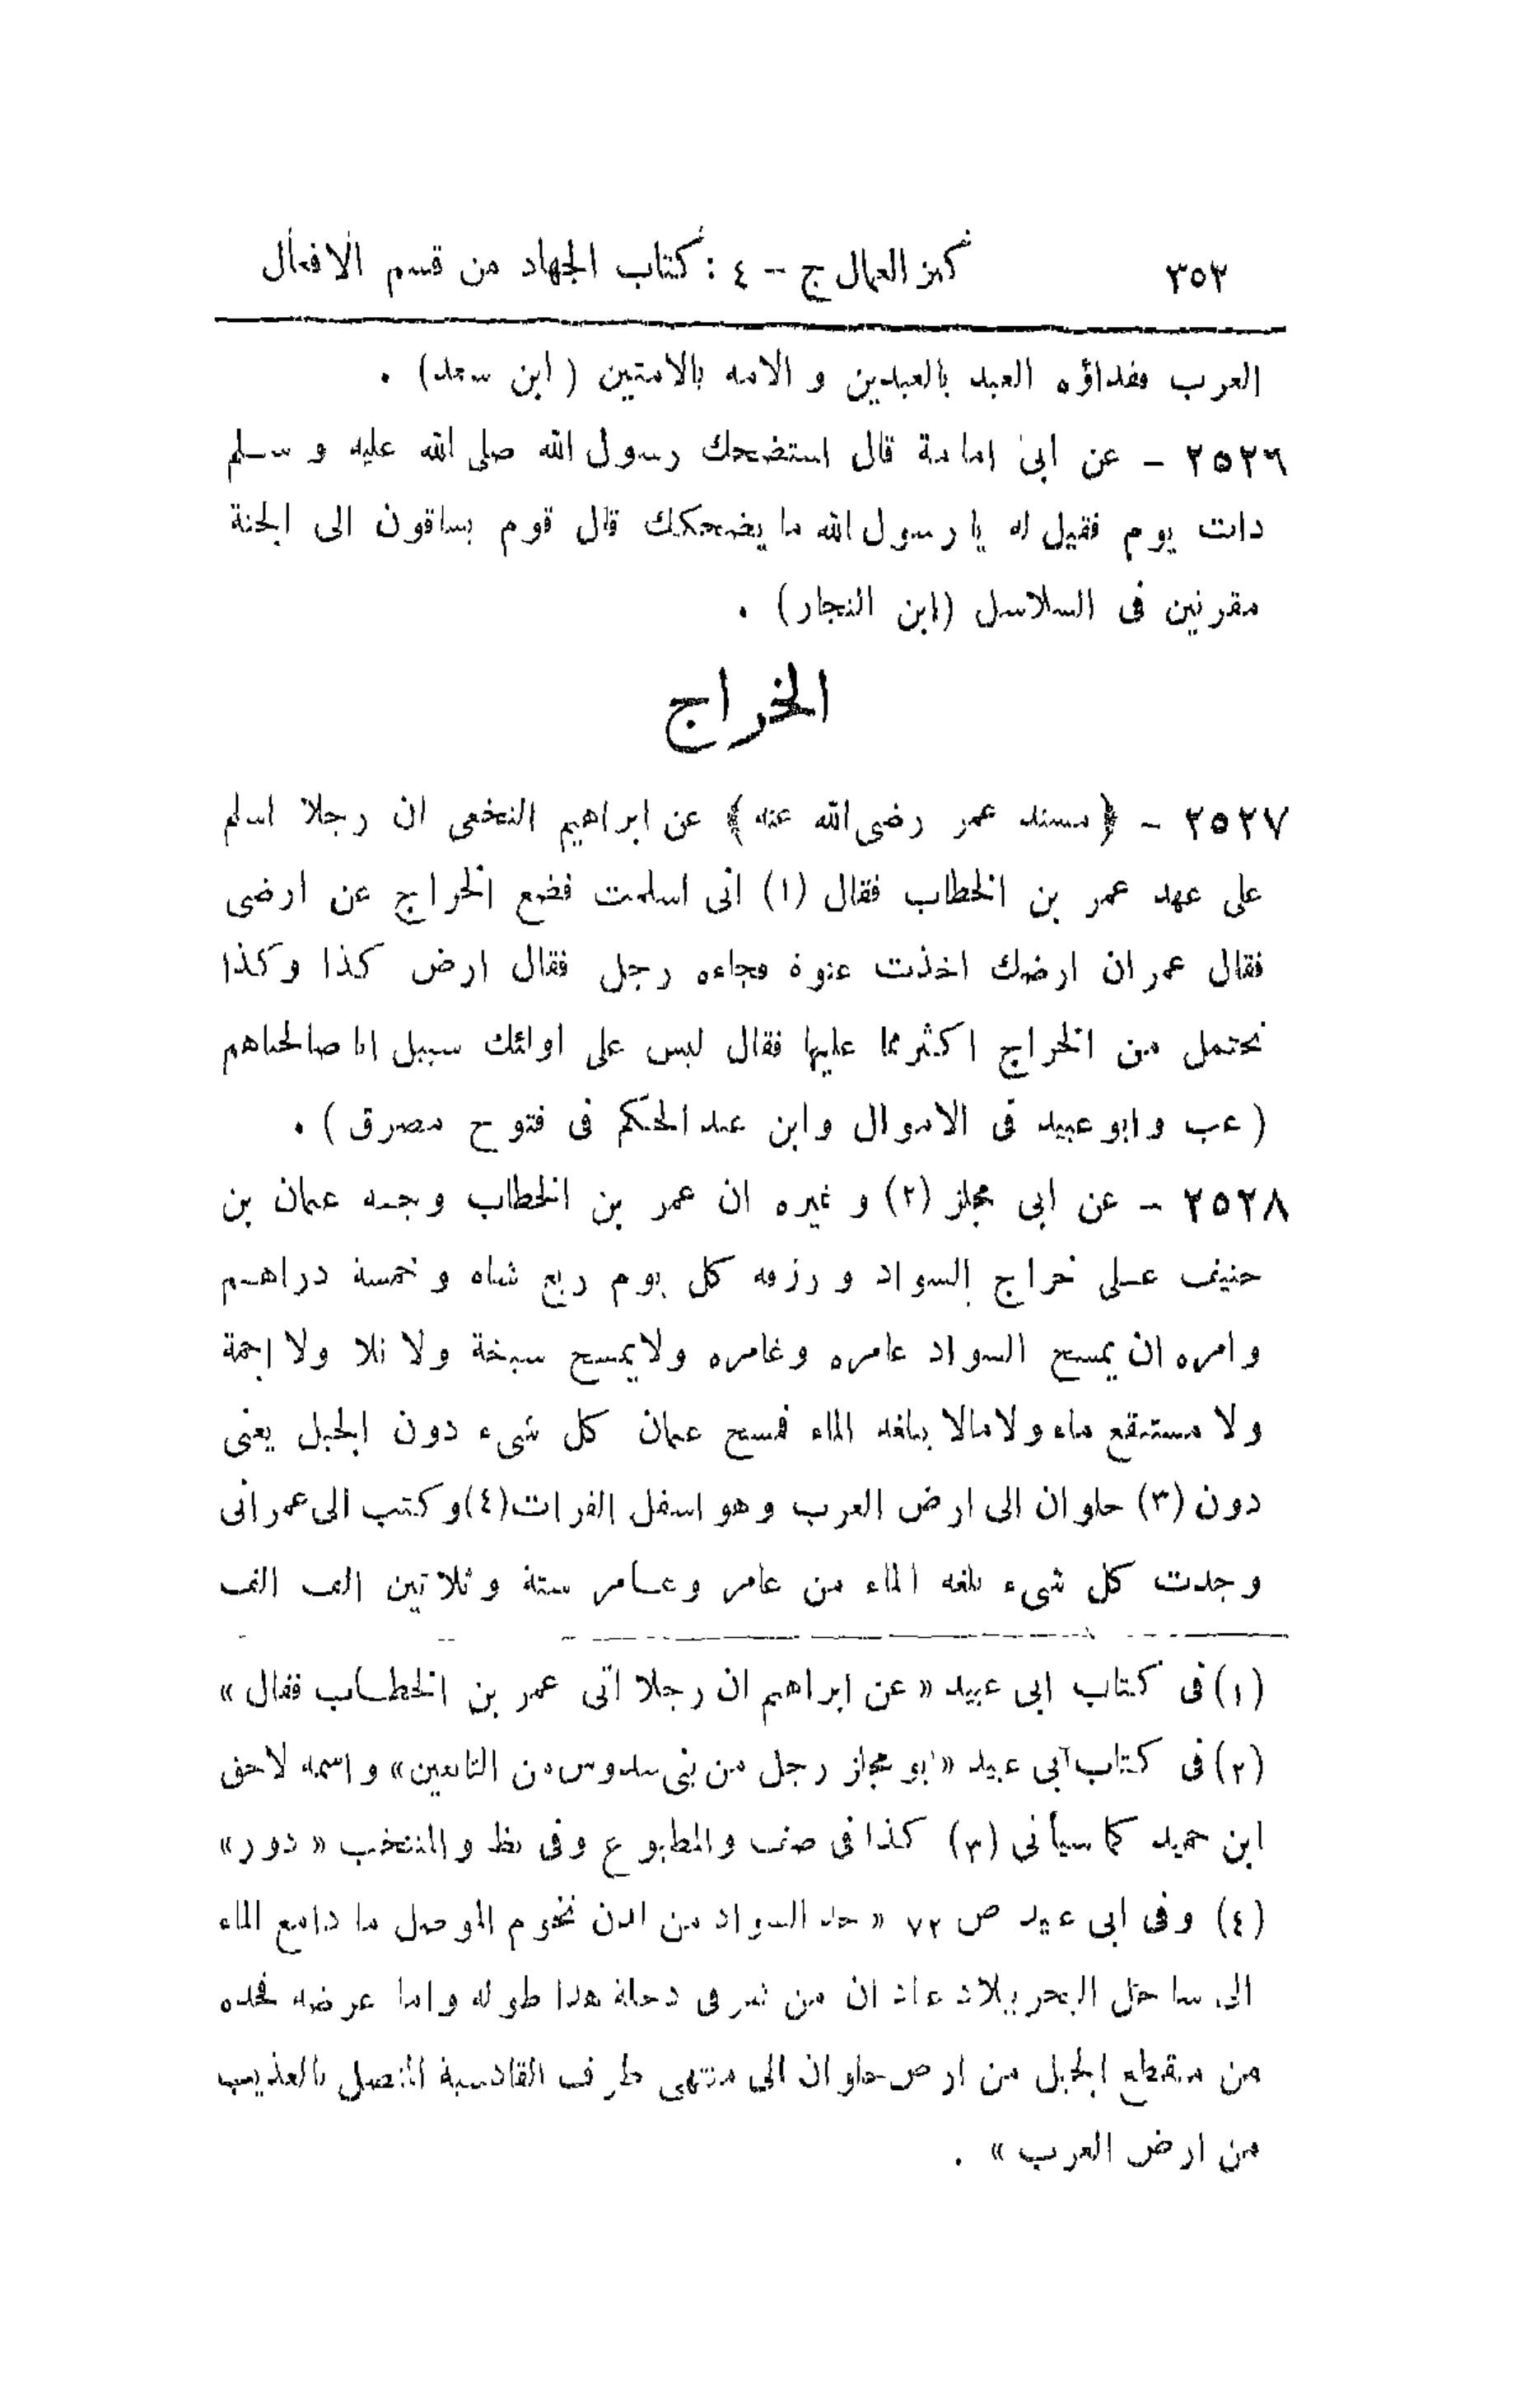 ٣٥٢ كنز العمال ج – ٤ : كتاب الجهاد من قسم الافعال
العرب ففداؤه العبد بالعبدين و الامه بالامتين ( ابن سعد) .
٢٥٢٦ – عن ابى امامة قال استضحك رسول الله صلى الله عليه و سلم
ذات يوم فقيل له يا رسول الله ما يضحكك قال قوم يساقون الى الجنة
مقرنين فى السلاسل (ابن النجار) .
الخراج
٢٥٢٧ – ﴿مسند عمر رضى الله عنه﴾ عن ابراهيم النخعى ان رجلا اسلم
على عهد عمر بن الخطاب فقال (١) انى اسلمت فضع الخراج عن ارضى
فقال عمر ان ارضك اخذت عنوة فجاءه رجل فقال ارض كذا وكذا
تحتمل من الخراج اكثر مما عليها فقال ليس على اولئك سبيل انا صالحناهم
( عب وابو عبيد فى الاموال وابن عبد الحكم فى فتوح مصر ق ) .
٢٥٢٨ – عن ابى مجلز (٢) و غيره ان عمر بن الخطاب وجه عثمان بن
حنيف على خراج السواد و رزقه كل يوم ربع شاه و خمسة دراهم
وامره ان يمسح السواد عامره وغامره ولا يمسح سبخة ولا تلا ولا اجمة
ولا مستنقع ماء ولا مالا يبلغه الماء فمسح عثمان كل شىء دون الجبل يعنى
دون (٣) حلوان الى ارض العرب وهو اسفل الفرات(٤) وكتب الى عمر انى
وجدت كل شىء بلغه الماء من عامر وغامر ستة وثلاثين الف الف
(١) فى كتاب ابى عبيد « عن ابراهيم ان رجلا اتى عمر بن الخطاب فقال »
(٢) فى كتاب ابى عبيد « ابو مجلز رجل من بنى سدوس من التابعين» و اسمه لاحق
ابن حميد كما سيأتى (٣) كذا فى صف والمطبوع وفى نظ والمنتخب « دور»
(٤) وفى ابى عبيد ص ٧٢ « حد السواد من لدن تخوم الموصل ما دا مع الماء
الى ساحل البحر ببلاد عبادان من شرقى دجلة هذا طوله واما عرضه فحده
من منقطع الجبل من ارض حلوان الى منتهى طرف القادسية المتصل بالعذيب
من ارض العرب » .